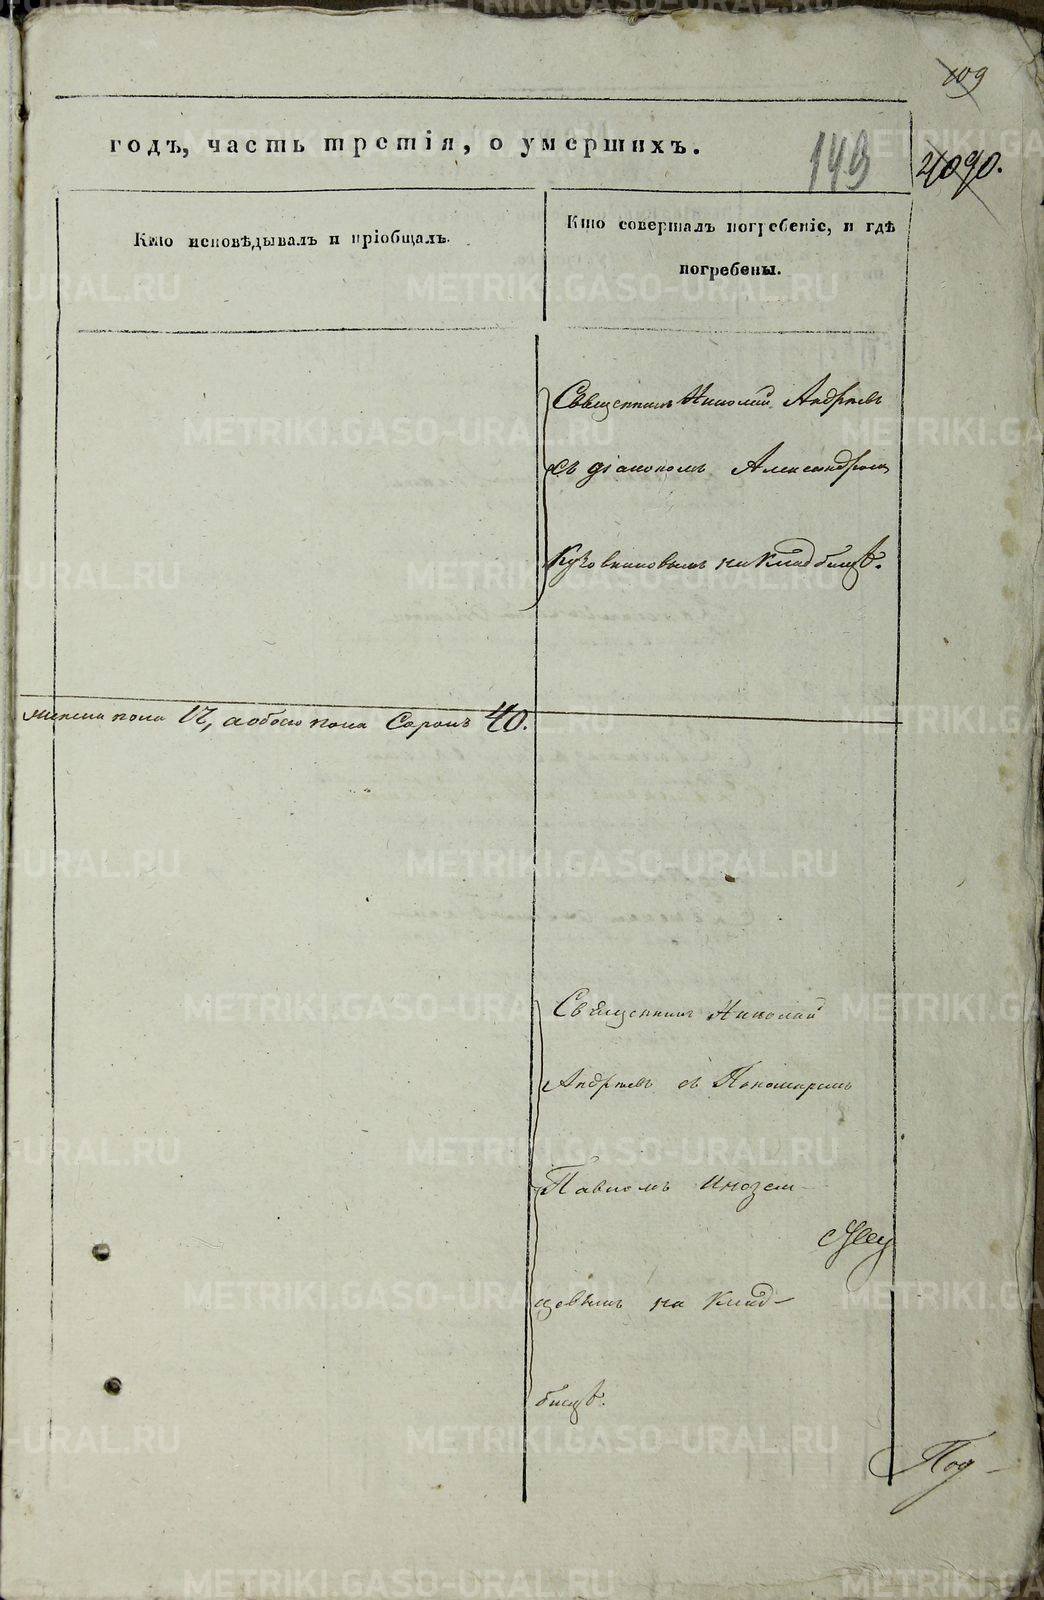 109
годъ, часть третія, о умершихъ.
149
4090.
Кто исповѣдывалъ и пріобщалъ.
Кто совершалъ погребеніе, и гдѣ
погребены.
Священникъ Николай Андреевъ
съ діакономъ Александромъ
на кладбищѣ.
женска пола 17, а обоего пола Сорокъ 40.
Священникъ Николай
Андреевъ съ Пономаремъ
Павломъ Инозем-
цовымъ на клад-
бищѣ.
Под-
METRIKI.GASO-URAL.RU